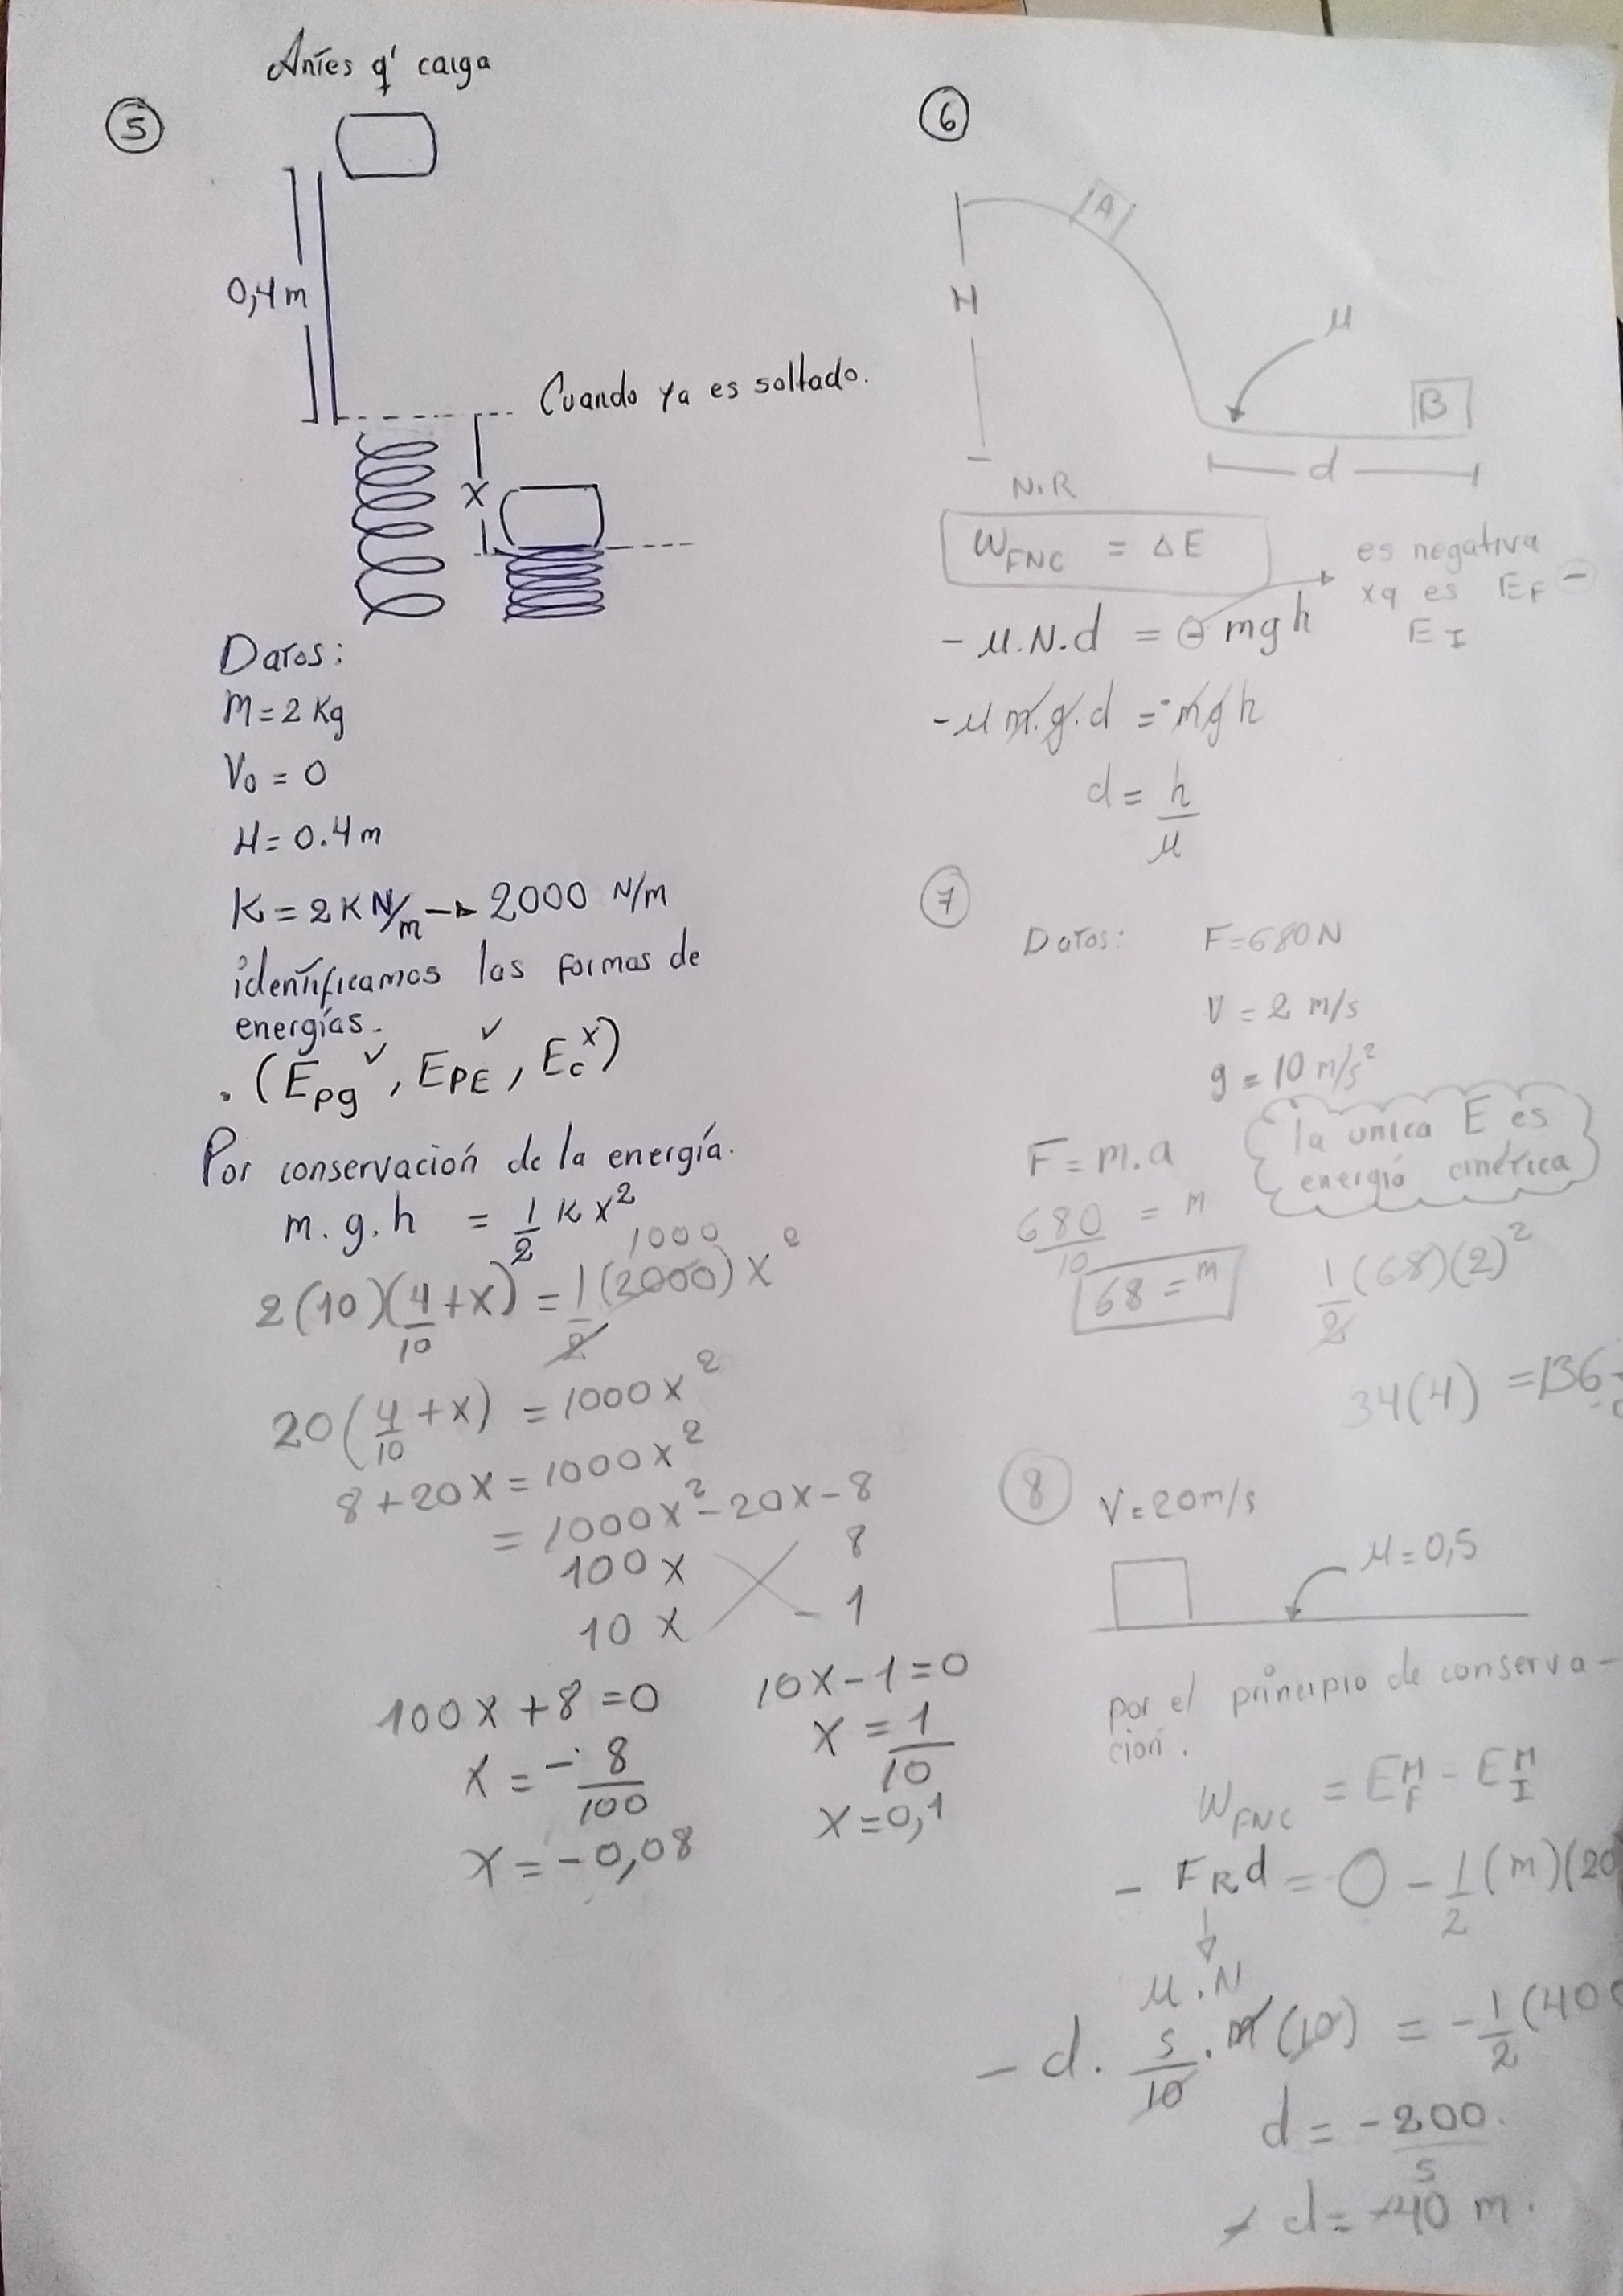 Antes q' caiga
⑤
0,4m
Cuando ya es soltado.
X
Datos:
M = 2 Kg
V₀ = 0
H = 0.4 m
K = 2 KN/m → 2000 N/m
identificamos las formas de
energías.
. (Epg ✓, EPE ✓, Ec x)
Por conservación de la energía.
m. g. h = 1/2 K x²
2(10)(4/10 + x) = 1/2 (2000) x²
1000
20(4/10 + x) = 1000 x²
8 + 20x = 1000 x²
= 1000x² - 20x - 8
100x 8
10x - 1
100x + 8 = 0
x = - 8/100
x = - 0,08
10x - 1 = 0
x = 1/10
x = 0,1
⑥
A
H
μ
B
d
N.R
W_FNC = ΔE
es negativa
xq es E_F -
E_I
- μ.N.d = ⊖ mgh
- μ m.g.d = - mgh
d = h/μ
⑦
Datos: F = 680 N
V = 2 m/s
g = 10 m/s²
la unica E es
energia cinética
F = m.a
680/10 = m
68 = m
1/2 (68)(2)²
34(4) = 136
⑧ V = 20 m/s
μ = 0,5
por el principio de conserva-
ción.
W_FNC = E_F^M - E_I^M
- F_R d = 0 - 1/2 (m)(20
μ.N
- d. 5/10 . m (10) = - 1/2 (400
d = - 200/5
- d = -40 m.